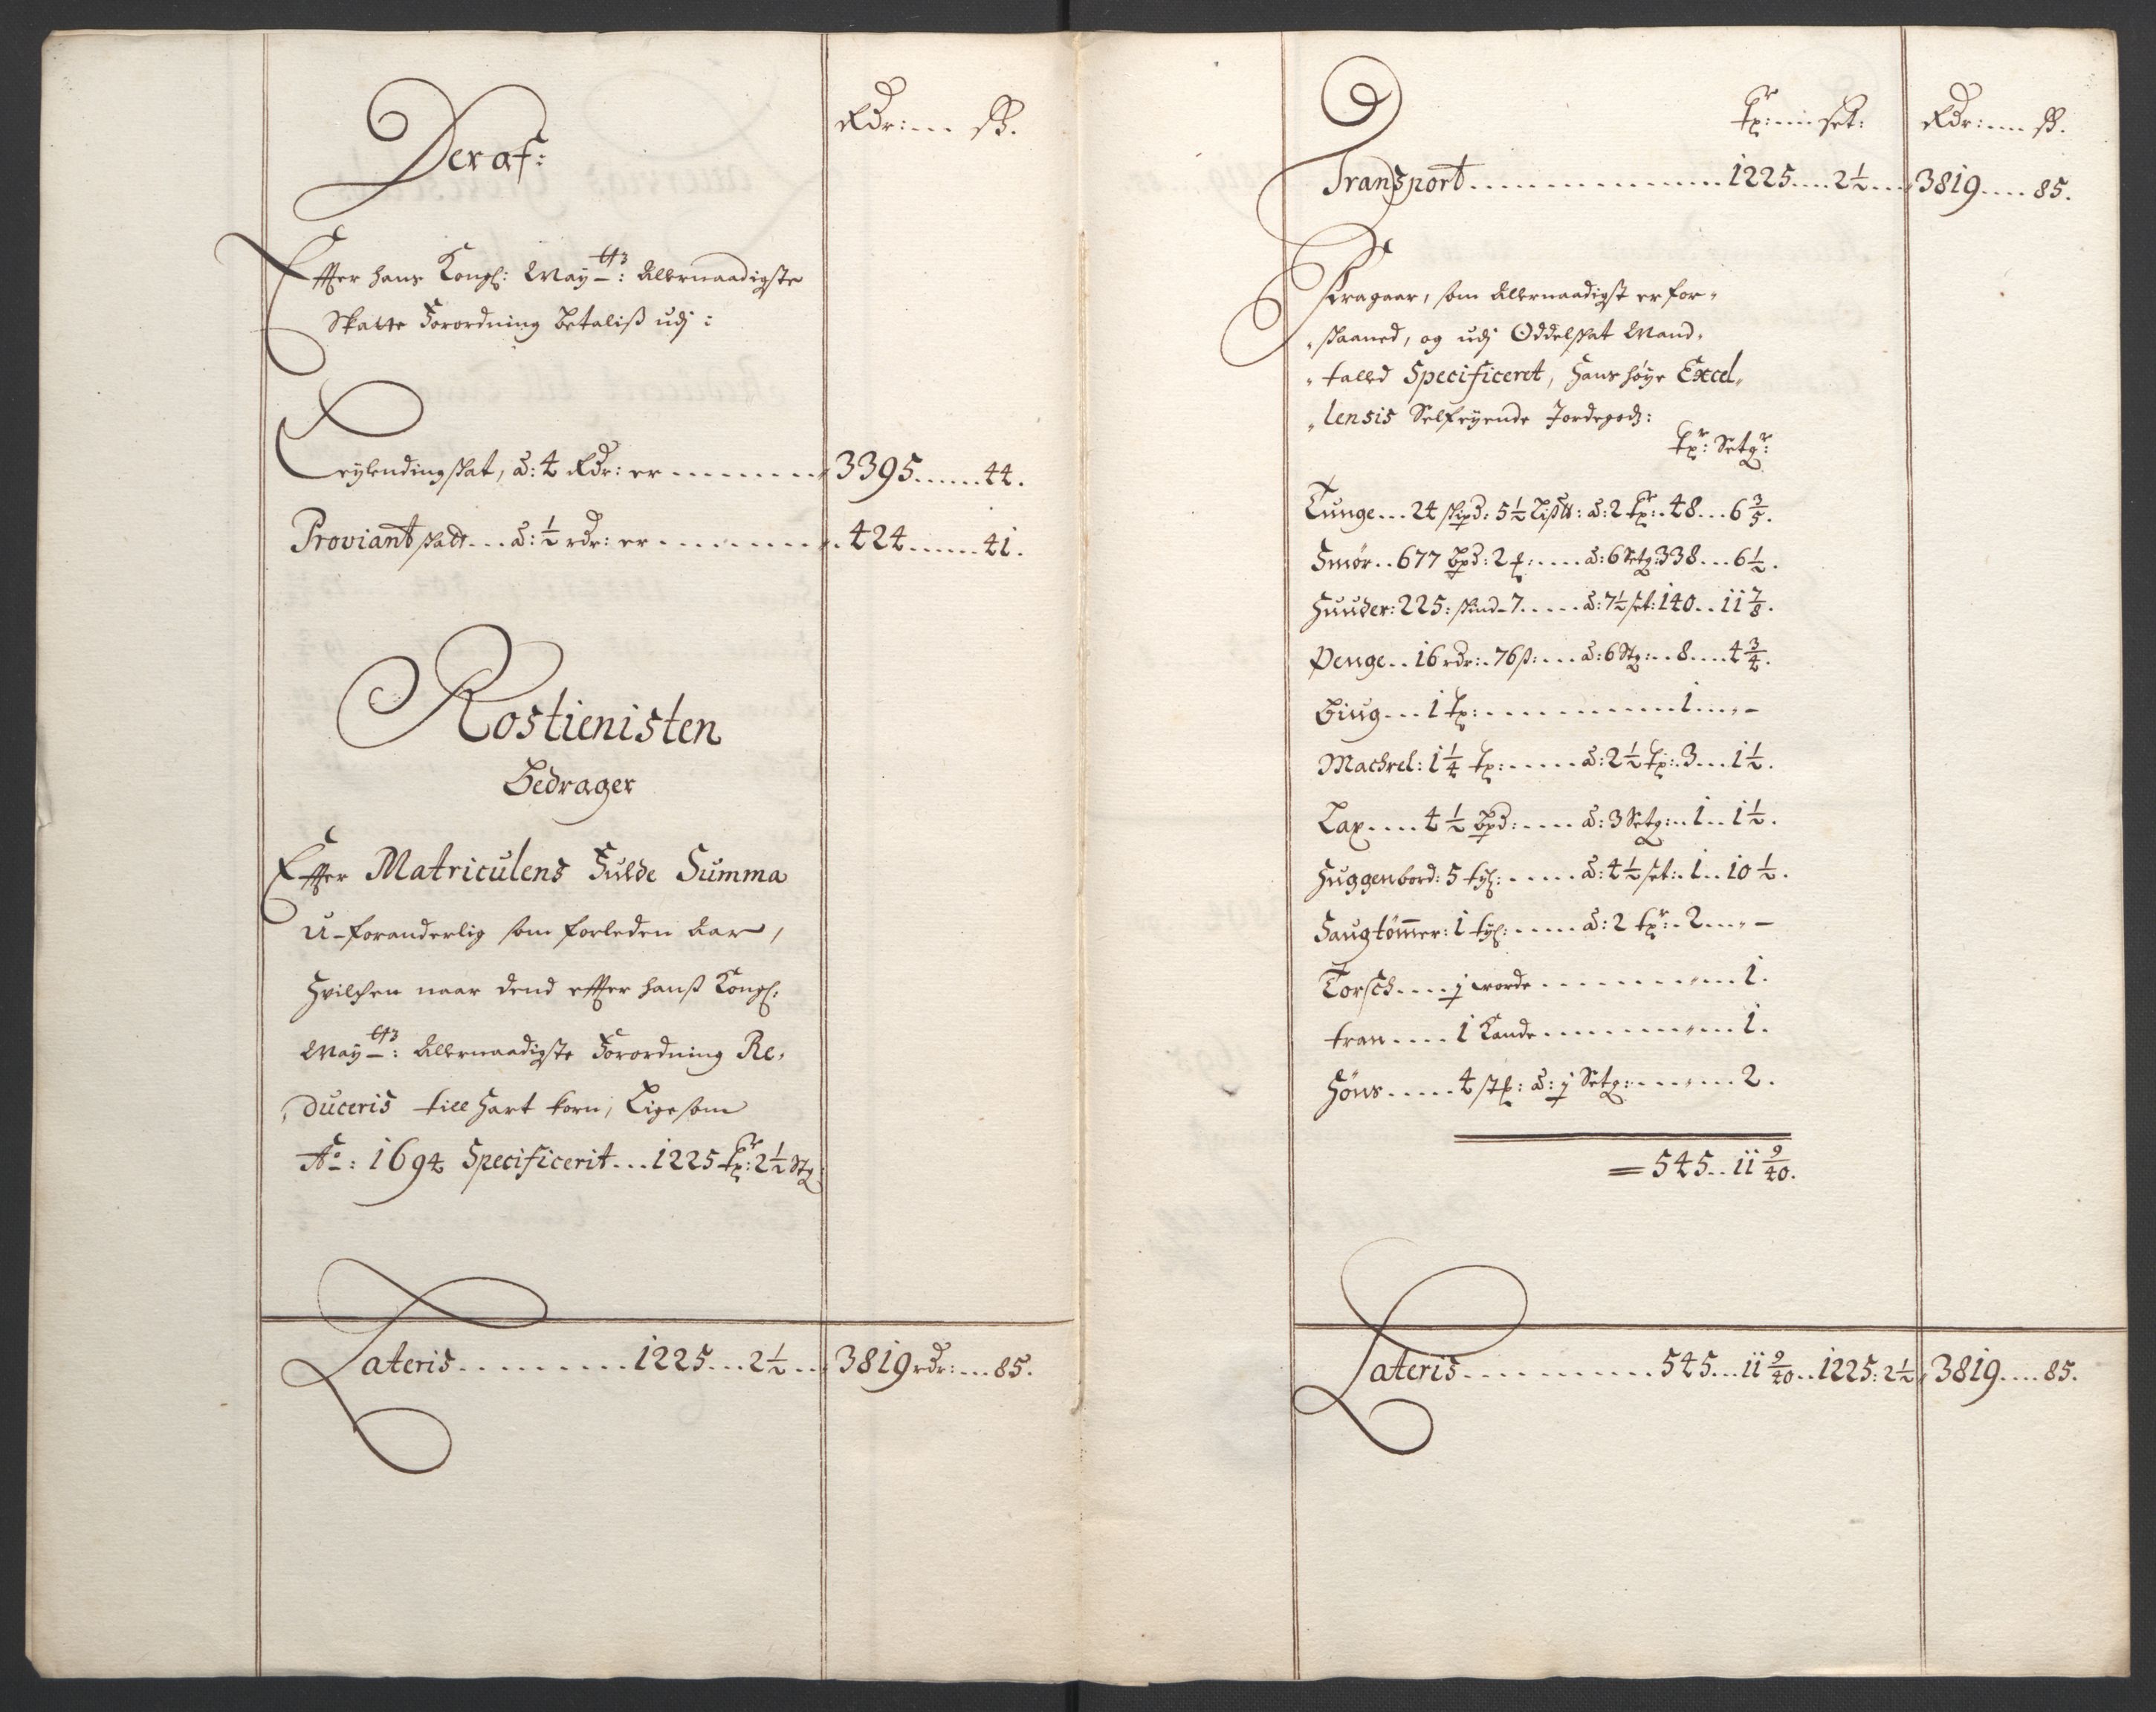 Rdr: ... ß.
Deraf:
Effter hans Kongl: May^tts: Allernaadigste
Skatte Forordning betaliß udj:
Leylendingskat, à: 4 Rdr: er ........ 3395 ...... 44.
Proviant skatt ... à: ½ rdr: er ........ 424 ...... 41.
Rostienisten
Bedrager
Effter Matriculens Fulde Summa
U-foranderlig som forleden Aar,
Hvilchen naar dend effter hanß Kongl:
May^tts: Allernaadigste Forordning Re,
,duceris till Hart korn, Ligesom
A°: 1694 Specificerit ... 1225 tr: 2½ Stg:
Lateris ......... 1225 ... 2½ ... 3819 rdr: ... 85.
tr: .... set: Rdr: .... ß.
Transport ................ 1225 .... 2½ ... 3819 .... 85.
Fragaar, som Allernaadigst er for,
,skaaned, og udj Oddelskat Mand,
,talled Specificeret, Hans høye Excel,
,lensis Selfeyende Jordegodz:
tr: Setgr:
Tunge ... 24 skipd: 5½ Lißtt: à: 2 tr: . 48 ... 6 3/5.
Smør .. 677 bpd: 2 ..... à: 6 Setg: 338 ... 6½.
Huuder: 225: skind 7 ..... à: 7½ set: 140 .. 11 7/8.
Penge .. 16 rdr: . 76 ß: .... à: 6 Stg: .. 8 .... 4¾.
Biug ... 1 tr: ............ 1 ... „ –
Machrel: 1¼ tr: ...... à: 2½ tr: . 3 ... 1½.
Lax .... 4½ bpd: ..... à: 3 Setg: .. 1 .. 1½.
Huggenbord: 5 tyl: ..... à: 4½ set: . 1 .. 10½.
Saugtømmer: 1 tyl: ..... à: 2 tr: . 2 ... „ –
Torsch .... j vorde ........ „ ... 1.
tran .... 1 Kande ........ „ ... 1.
Höns ..... 4 stk: à: j Setg: .... „ ... 2.
= 545 .. 11 9/40.
Lateris ............ 545 ... 11 9/40 .. 1225: 2½ „ 3819 .... 85.